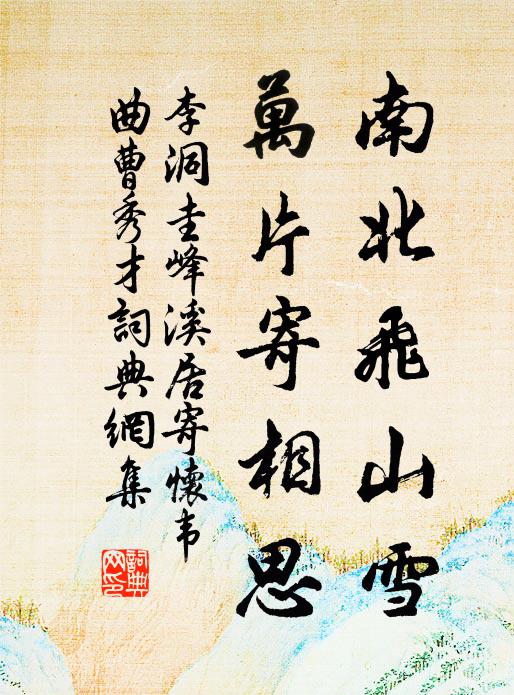 南北飛山雪
萬片寄相思
李洞圭峰溪居寄懷韦
曲曹秀才詞典網集
詞典
网印